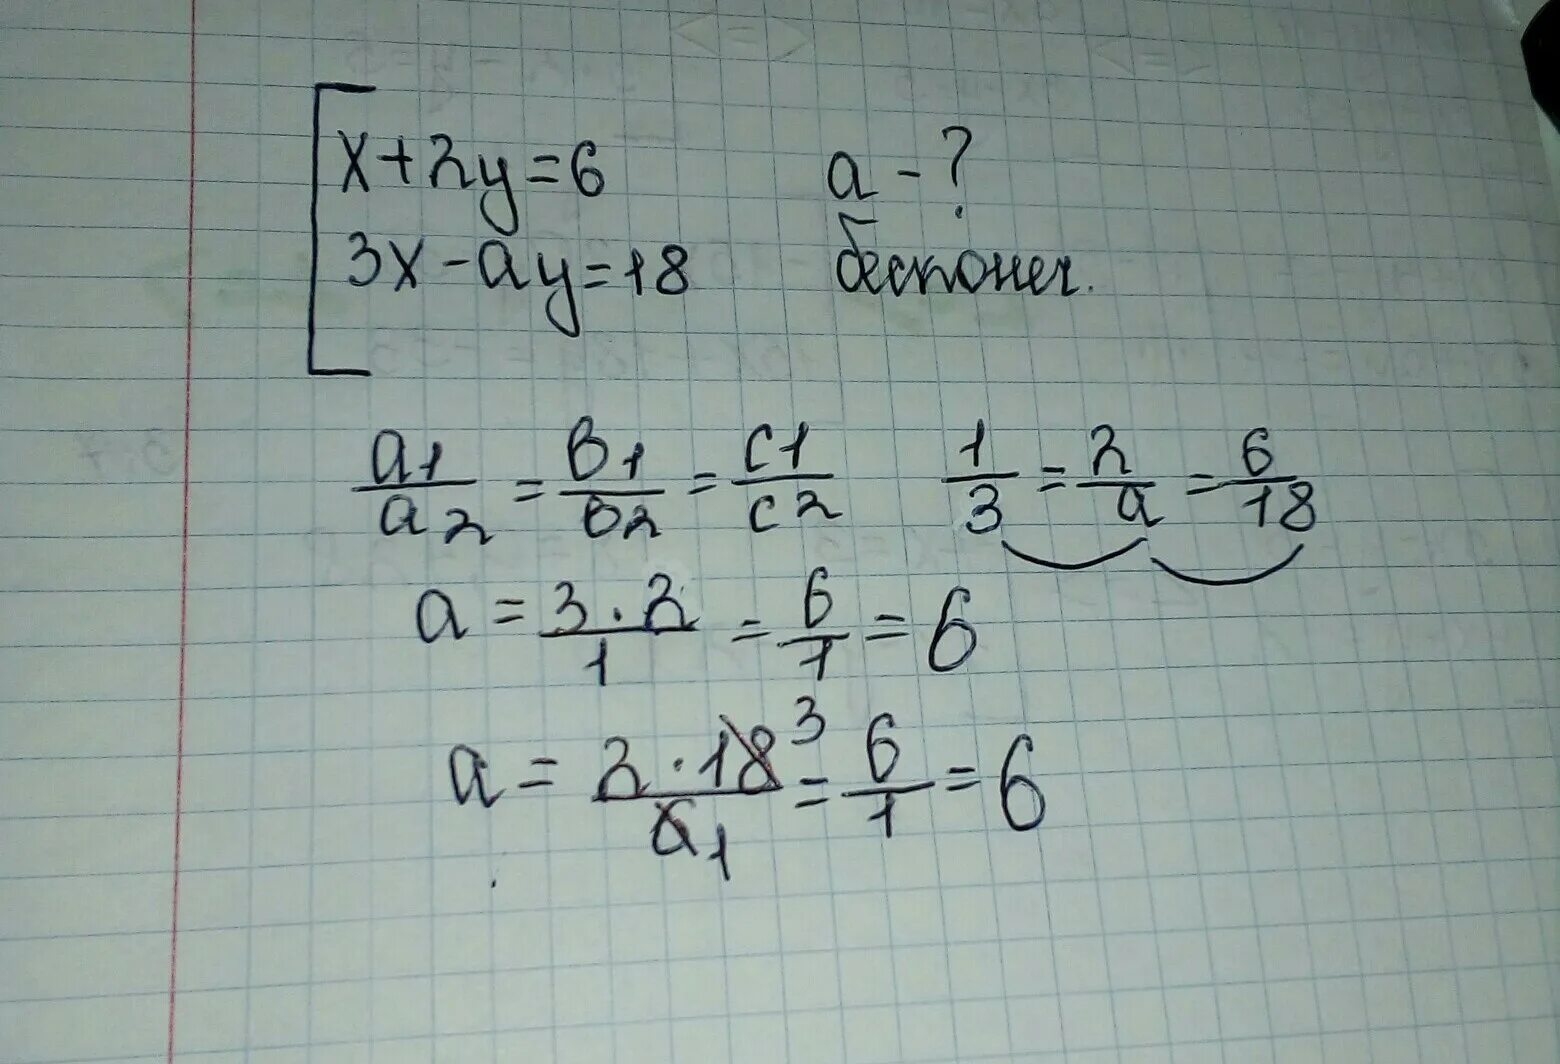 x+2y=6 a-?
3x-ay=18 бесконеч.
a1/a2 = в1/в2 = c1/c2 1/3 = 2/a = 6/18
a = 3·2/1 = 6/1 = 6
a = 2·18 3/6 1 = 6/1 = 6